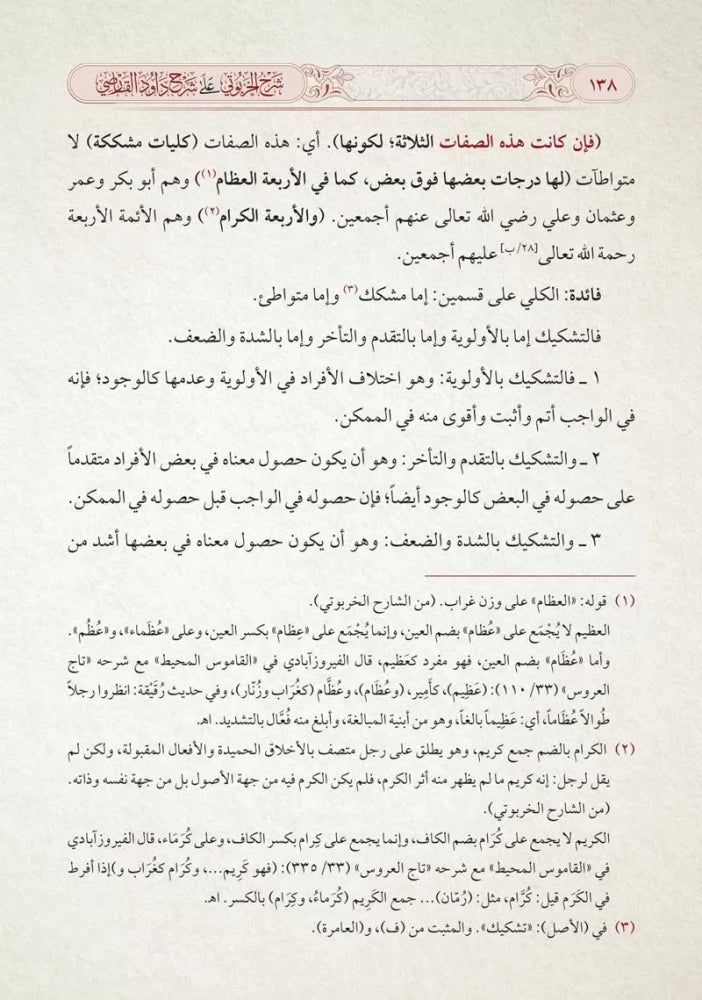 ١٣٨
شرح الخربوتي على شرح داود القارصي
(فإن كانت هذه الصفات الثلاثة؛ لكونها). أي: هذه الصفات (كليات مشككة) لا
متواطآت (لها درجات بعضها فوق بعض، كما في الأربعة العظام(١)) وهم أبو بكر وعمر
وعثمان وعلي رضي الله تعالى عنهم أجمعين. (والأربعة الكرام(٢)) وهم الأئمة الأربعة
رحمة الله تعالى[٢٨/ب] عليهم أجمعين.
فائدة: الكلي على قسمين: إما مشكك(٣) وإما متواطئ.
فالتشكيك إما بالأولوية وإما بالتقدم والتأخر وإما بالشدة والضعف.
١ ـ فالتشكيك بالأولوية: وهو اختلاف الأفراد في الأولوية وعدمها كالوجود؛ فإنه
في الواجب أتم وأثبت وأقوى منه في الممكن.
٢ ـ والتشكيك بالتقدم والتأخر: وهو أن يكون حصول معناه في بعض الأفراد متقدماً
على حصوله في البعض كالوجود أيضاً؛ فإن حصوله في الواجب قبل حصوله في الممكن.
٣ ـ والتشكيك بالشدة والضعف: وهو أن يكون حصول معناه في بعضها أشد من
(١) قوله: «العظام» على وزن غراب. (من الشارح الخربوتي).
العظيم لا يُجْمَع على «عُظام» بضم العين، وإنما يُجْمَع على «عِظام» بكسر العين، وعلى «عُظَماء»، و«عُظُم».
وأما «عُظَام» بضم العين، فهو مفرد كعَظيم، قال الفيروزآبادي في «القاموس المحيط» مع شرحه «تاج
العروس» (٣٣/ ١١٠): (عَظِيم)، كأَمِير، (وعُظَام)، وعُظَّام (كغُرَاب وزُنَّار)، وفي حديث رُقَيْقة: انظروا رجلاً
طُوالاً عُظَاماً، أي: عَظِيماً بالغاً، وهو من أبنية المبالغة، وأبلغ منه فُعَّال بالتشديد. اهـ.
(٢) الكرام بالضم جمع كريم، وهو يطلق على رجل متصف بالأخلاق الحميدة والأفعال المقبولة، ولكن لم
يقل لرجل: إنه كريم ما لم يظهر منه أثر الكرم، فلم يكن الكرم فيه من جهة الأصول بل من جهة نفسه وذاته.
(من الشارح الخربوتي).
الكريم لا يجمع على كُرَام بضم الكاف، وإنما يجمع على كِرام بكسر الكاف، وعلى كُرَمَاء، قال الفيروزآبادي
في «القاموس المحيط» مع شرحه «تاج العروس» (٣٣/ ٣٣٥): (فهو كَرِيم...، وكُرَام كغُرَاب و)إذا أفرط
في الكَرَم قيل: كُرَّام، مثل: (رُمّان)... جمع الكَرِيم (كُرَماءُ، وكِرَام) بالكسر. اهـ.
(٣) في (الأصل): «تشكيك». والمثبت من (ف)، و(العامرة).